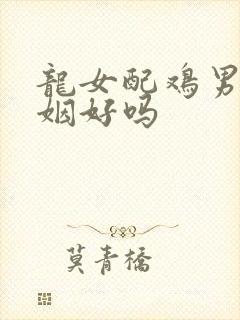 龍女配鸡男
姻好吗
莫青橋